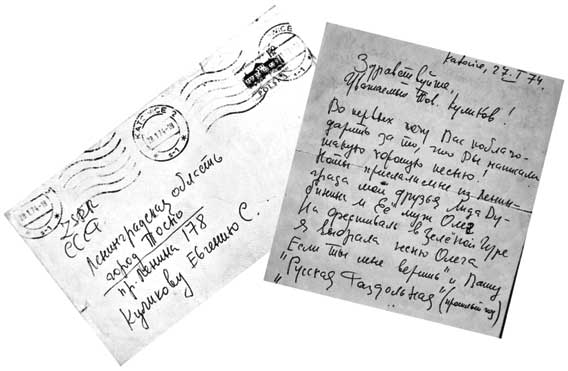 KATOWICE 2
ZSRR
СССР
Ленинградская область
город Тосно
пр. Ленина 178
Куликову Евгению С.
Katowice, 27.I 74.
Здравствуйте,
Уважаемый Тов. Куликов!
Во первых хочу Вас поблаго-
дарить за то, что Вы написали
такую хорошую песню!
Ноты прислали мне из Ленин-
града мои друзья Лида Ду-
бинины и Её муж Олег
На фестиваль в Зелёной Гуре
Я выбрала песню Олега
Если ты мне веришь" и Вашу
"Русская Раздольная" (прошлый год)